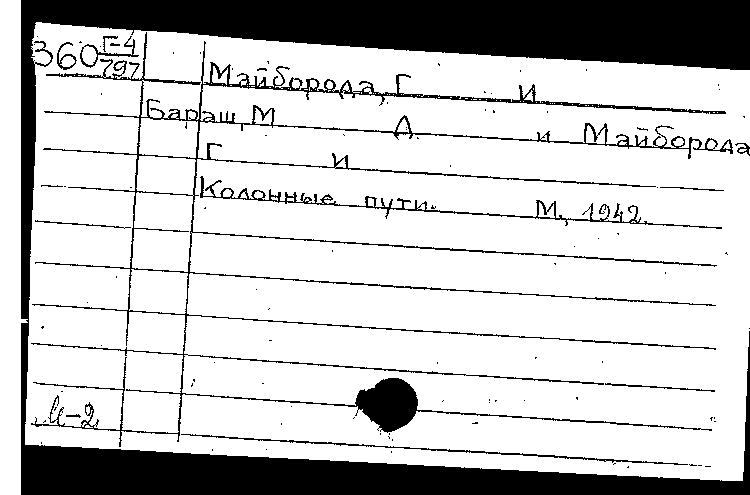 360 Г-4
797
Майборода, Г и
Бараш, М Д и Майборода
Г и
Колонные пути. М., 1942.
М-2